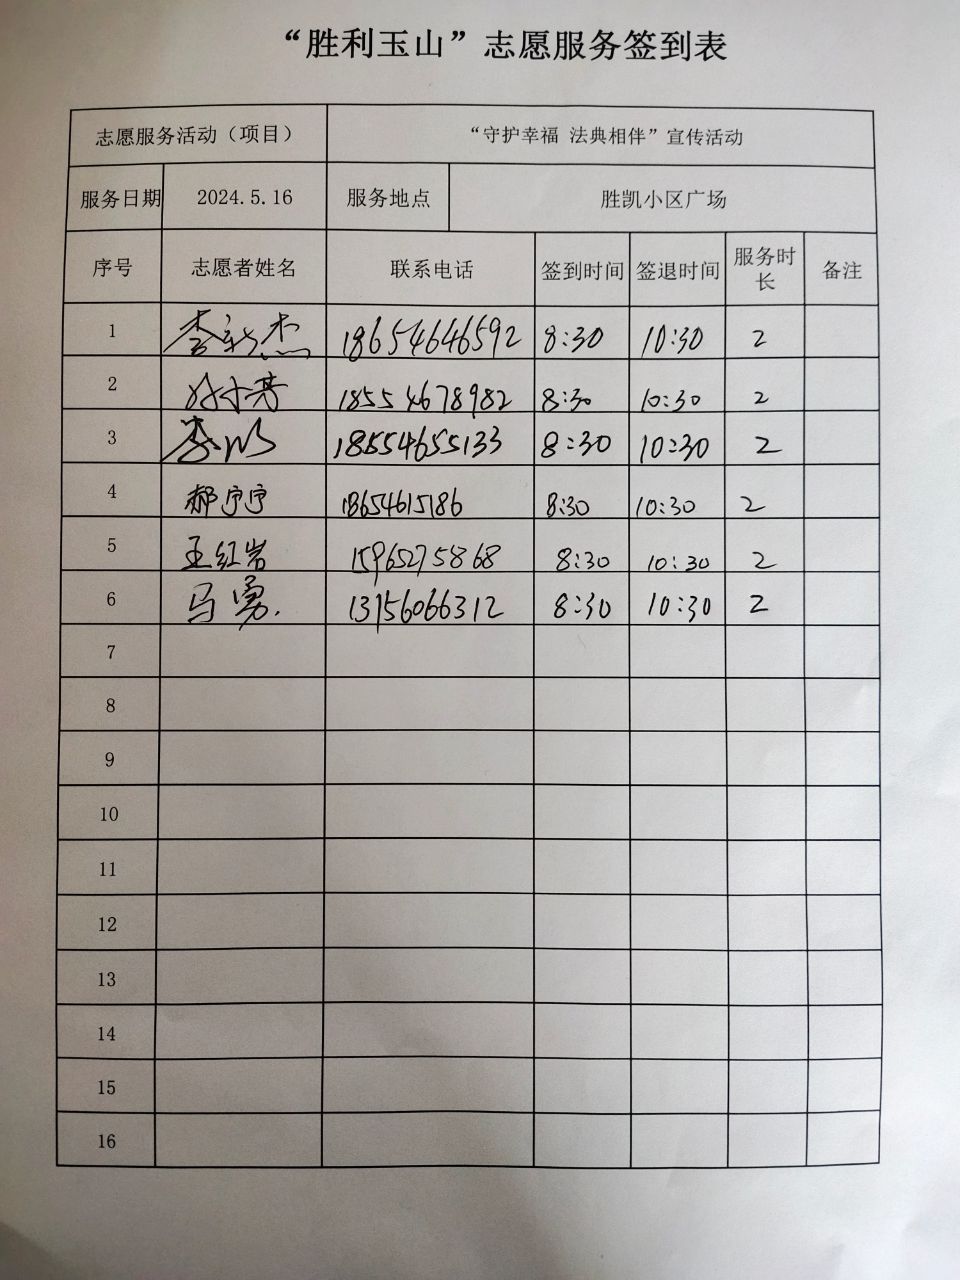 “胜利玉山”志愿服务签到表
志愿服务活动（项目） “守护幸福 法典相伴”宣传活动
服务日期 2024.5.16 服务地点 胜凯小区广场
序号 志愿者姓名 联系电话 签到时间 签退时间 服务时长 备注
1 李新杰 18654646592 8:30 10:30 2
2 18554678982 8:30 10:30 2
3 李 18554655133 8:30 10:30 2
4 郝宁宁 18654615186 8:30 10:30 2
5 王红岩 15965275868 8:30 10:30 2
6 马勇 13156066312 8:30 10:30 2
7
8
9
10
11
12
13
14
15
16